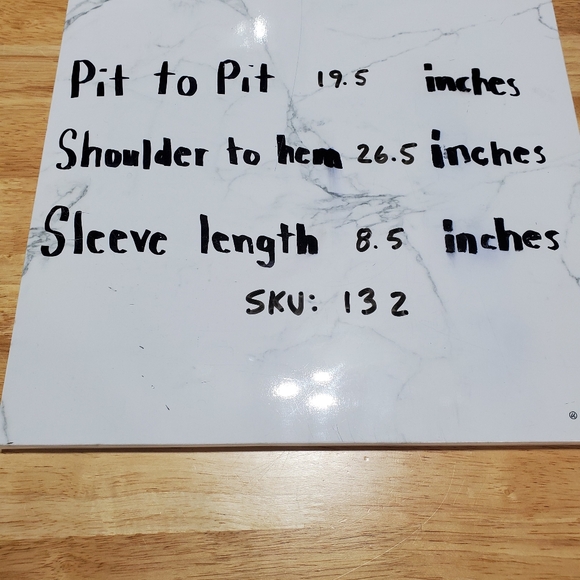 Pit to Pit 19.5 inches
Shoulder to hem 26.5 inches
Sleeve length 8.5 inches
SKU: 132